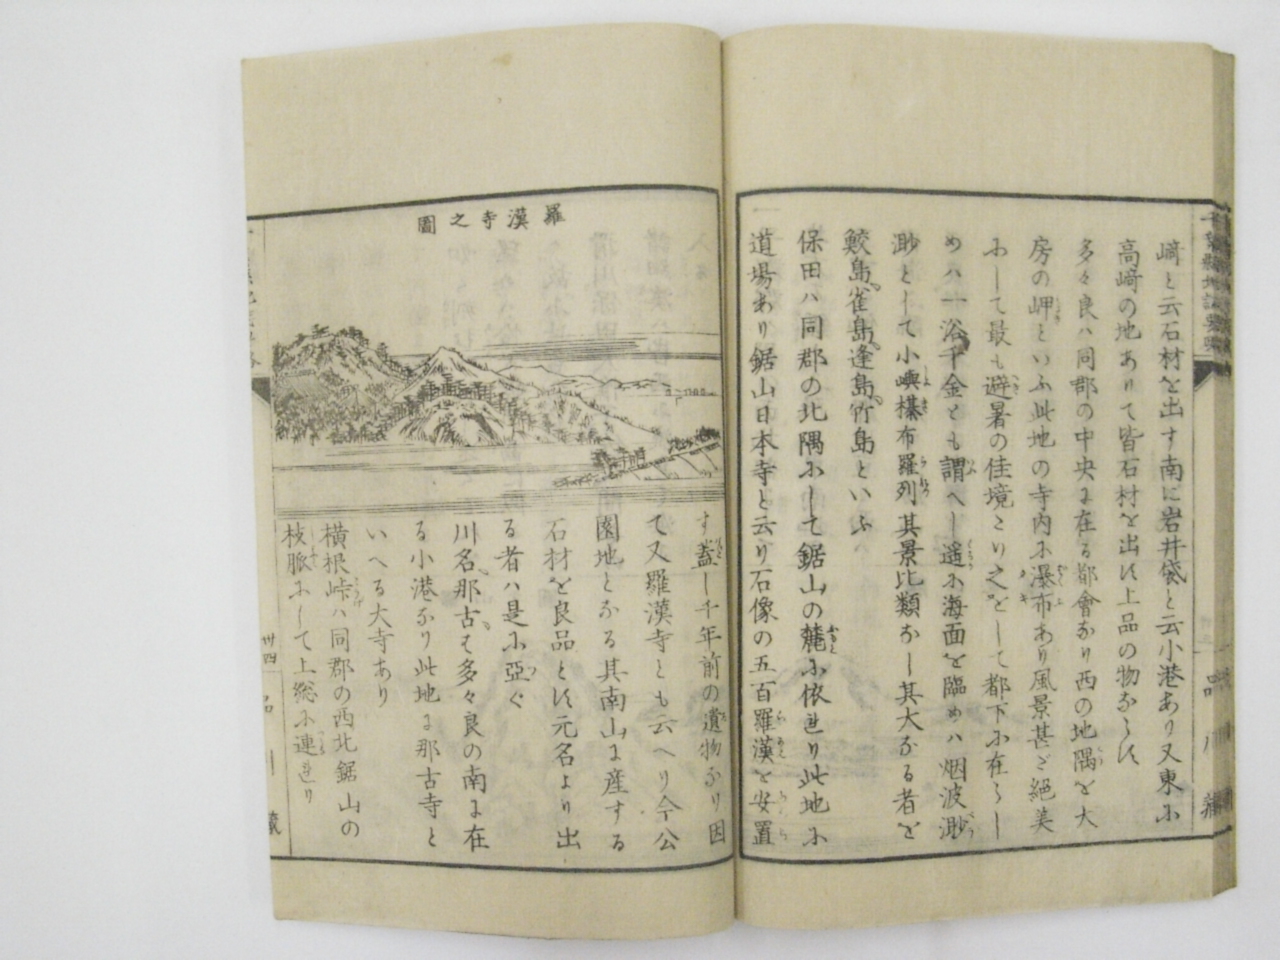 﨑と云石材を出す南に岩井袋と云小港あり又東ふ
高﨑の地ありて皆石材を出に上品の物あらに
多々良ハ同郡の中央に在る都會あり西の地隅を大
房の岬といふ此地の寺内ふ瀑布あり風景甚ざ絶美
ふして最も避暑の佳境こり之をして都下ふ在らし
めハ一浴千金とも謂へし遥ふ海面を臨めハ烟波渺
渺として小嶼棊布羅列其景比類あし其大ある者を
鮫島雀島逢島竹島といふ
保田ハ同郡の北隅ふして鋸山の麓ふ依れり此地ふ
道場あり鋸山日本寺と云り石像の五百羅漢を安置
羅漢寺之圖
す蓋し千年前の遺物あり因
て又羅漢寺とも云へり今公
園地とある其南山に産する
石材を良品とに元名より出
る者ハ是ふ亞ぐ
川名那古も多々良の南に在
る小港あり此地に那古寺と
いへる大寺あり
横根峠ハ同郡の西北鋸山の
枝脈ふして上総ふ連れり
卅四